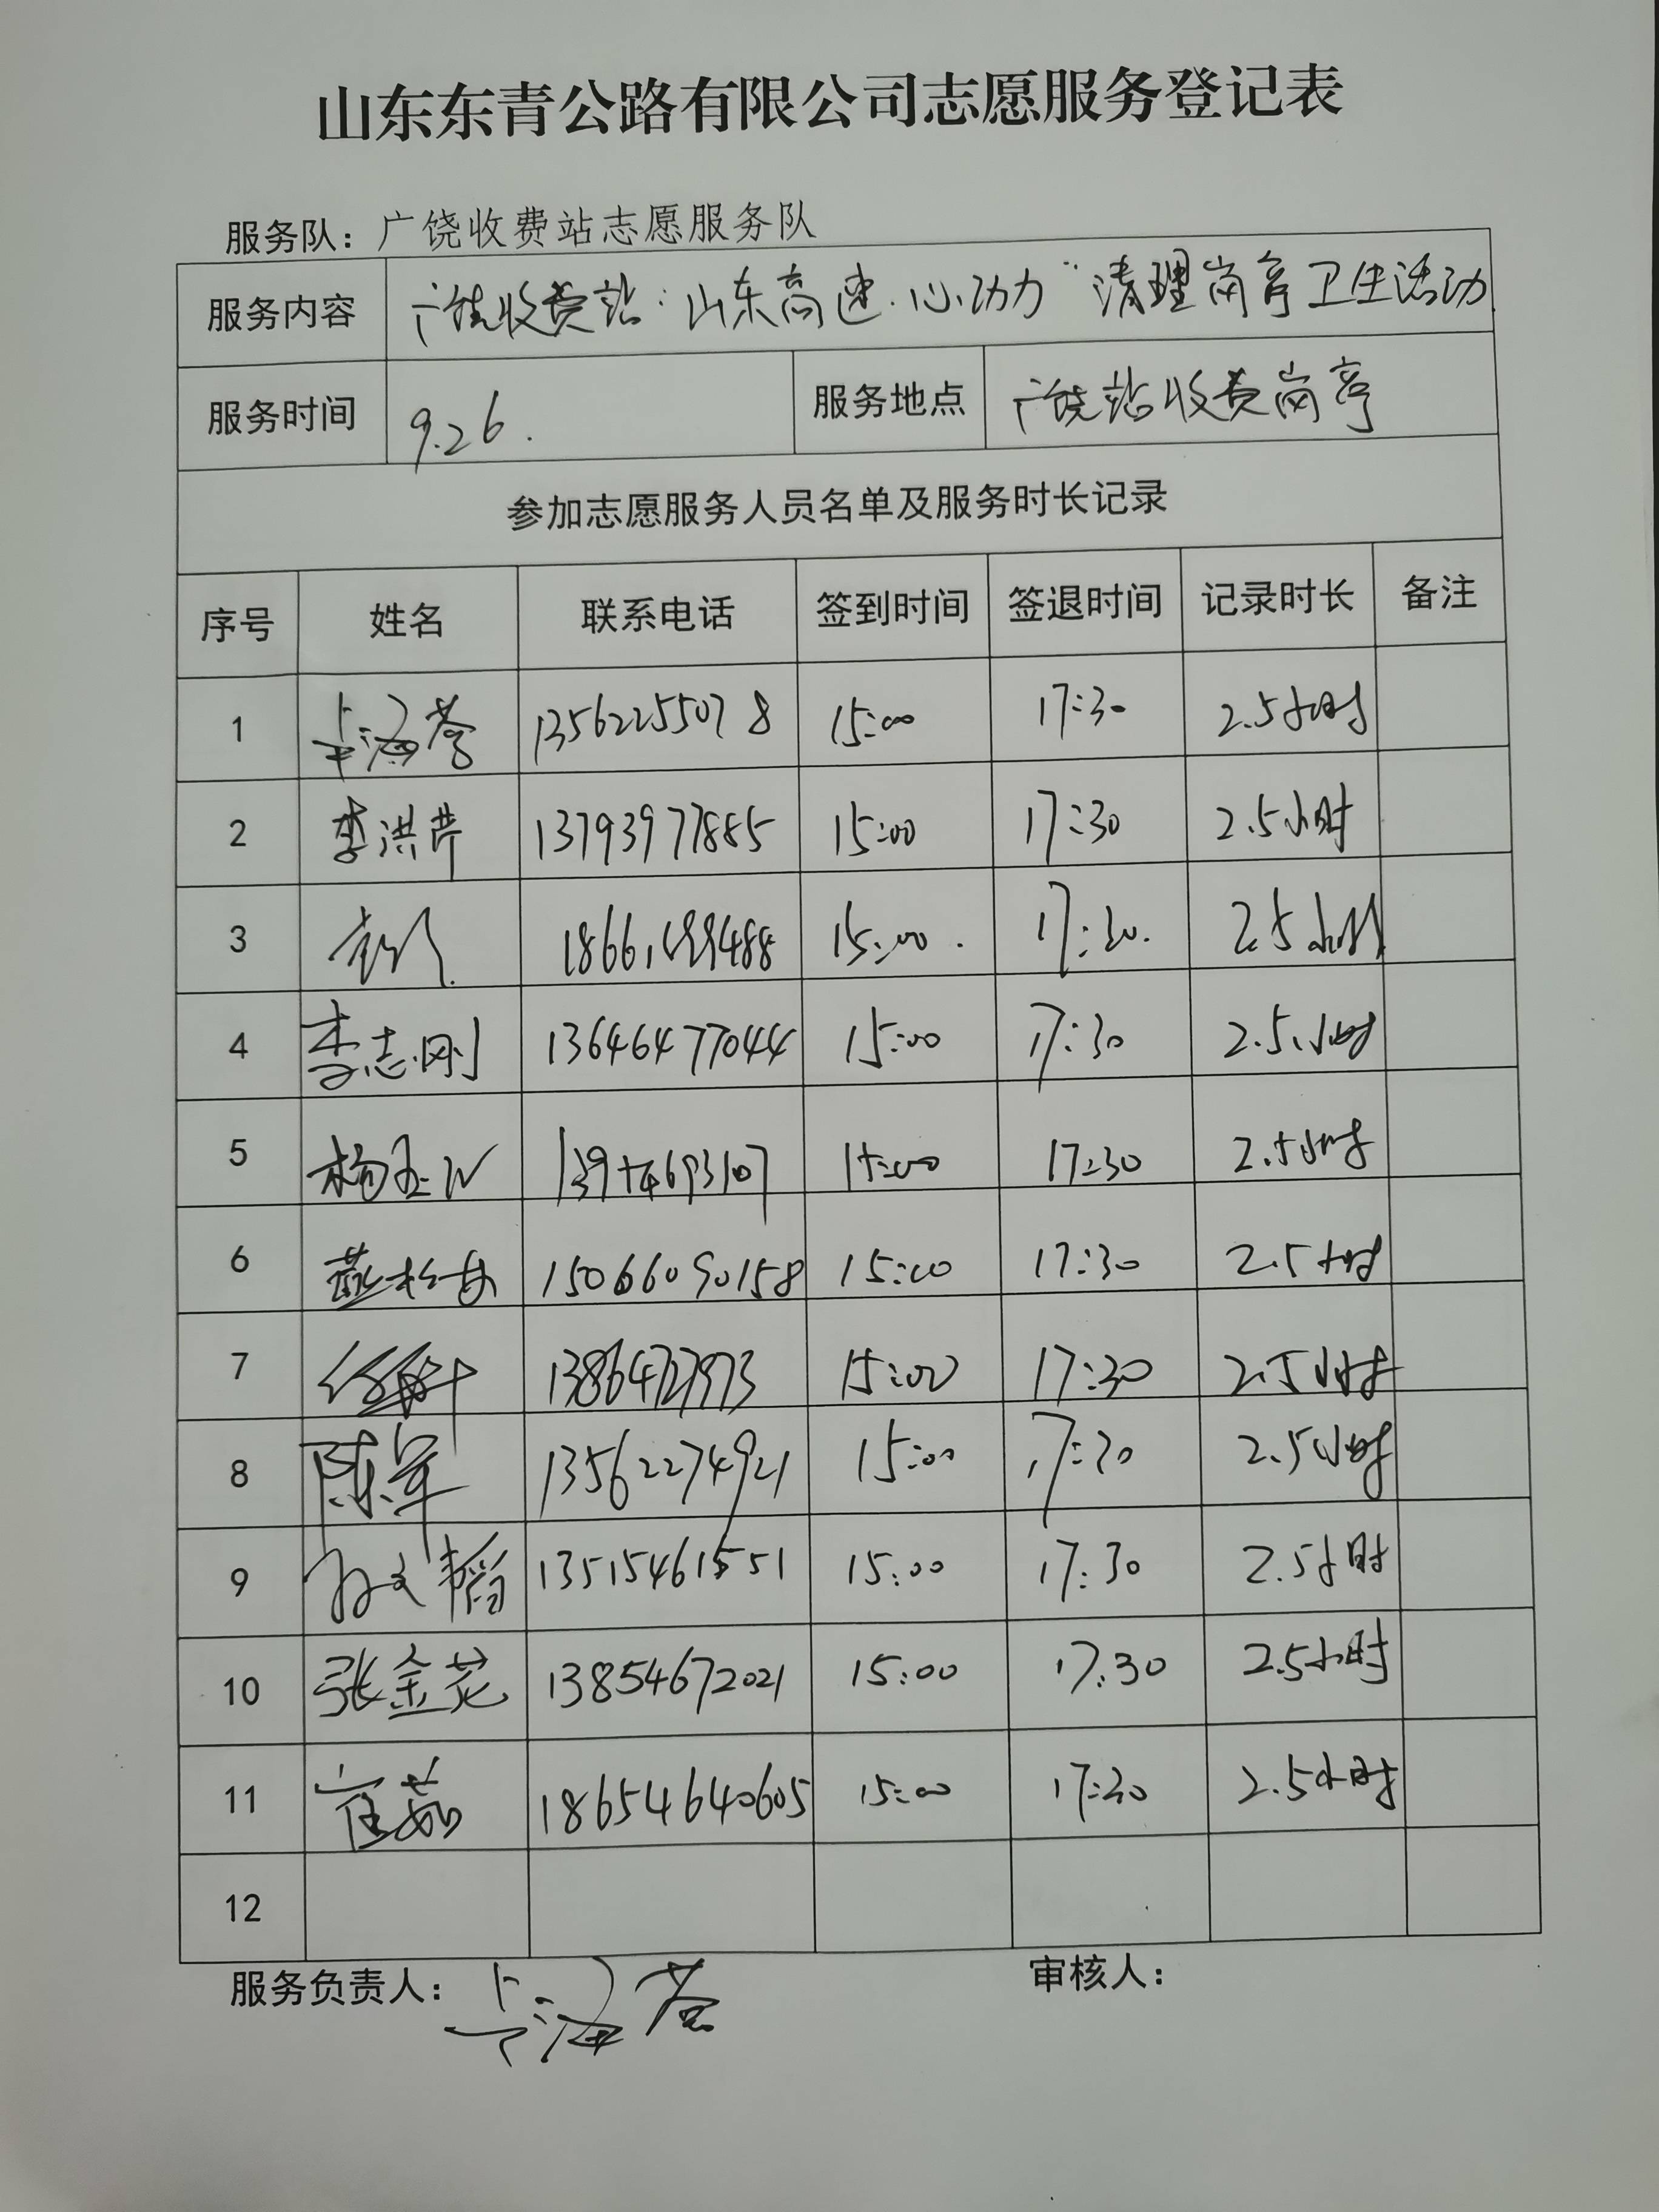 山东东青公路有限公司志愿服务登记表
服务队：广饶收费站志愿服务队
服务内容 广饶收费站：山东高速·心动力"清理岗亭卫生活动
服务时间 9.26. 服务地点 广饶站收费岗亭
参加志愿服务人员名单及服务时长记录
序号 姓名 联系电话 签到时间 签退时间 记录时长 备注
1 13562255078 15:00 17:30 2.5小时
2 李洪芹 13793977885 15:00 17:30 2.5小时
3 15:00. 17:30. 2.5小时
4 李志刚 13646477044 15:00 17:30 2.5小时
5 15:00 17:30 2.5小时
6 15066090158 15:00 17:30 2.5小时
7 15:00 17:30 2.5小时
8 陈军 13562274921 15:00 17:30 2.5小时
9 孙文韬 13515461551 15:00 17:30 2.5小时
10 张金花 13854672021 15:00 17:30 2.5小时
11 崔茹 18654640605 15:00 17:30 2.5小时
12
服务负责人： 审核人：